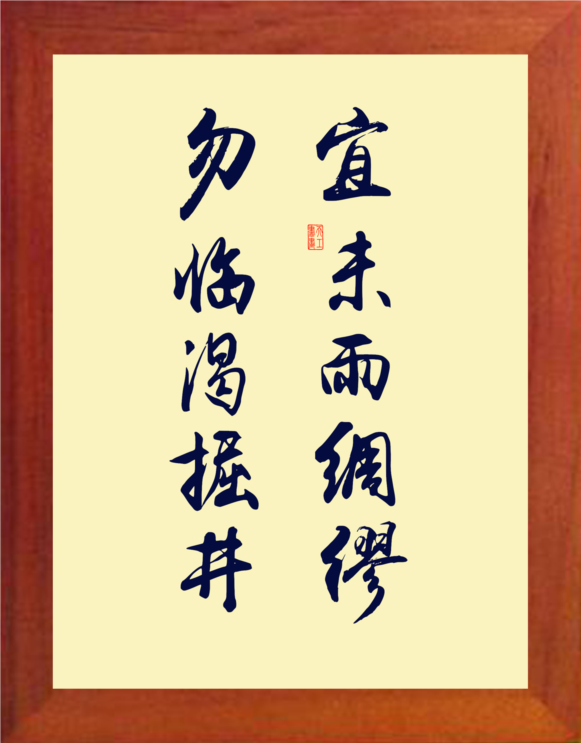 宜未雨綢繆
勿临渴掘井